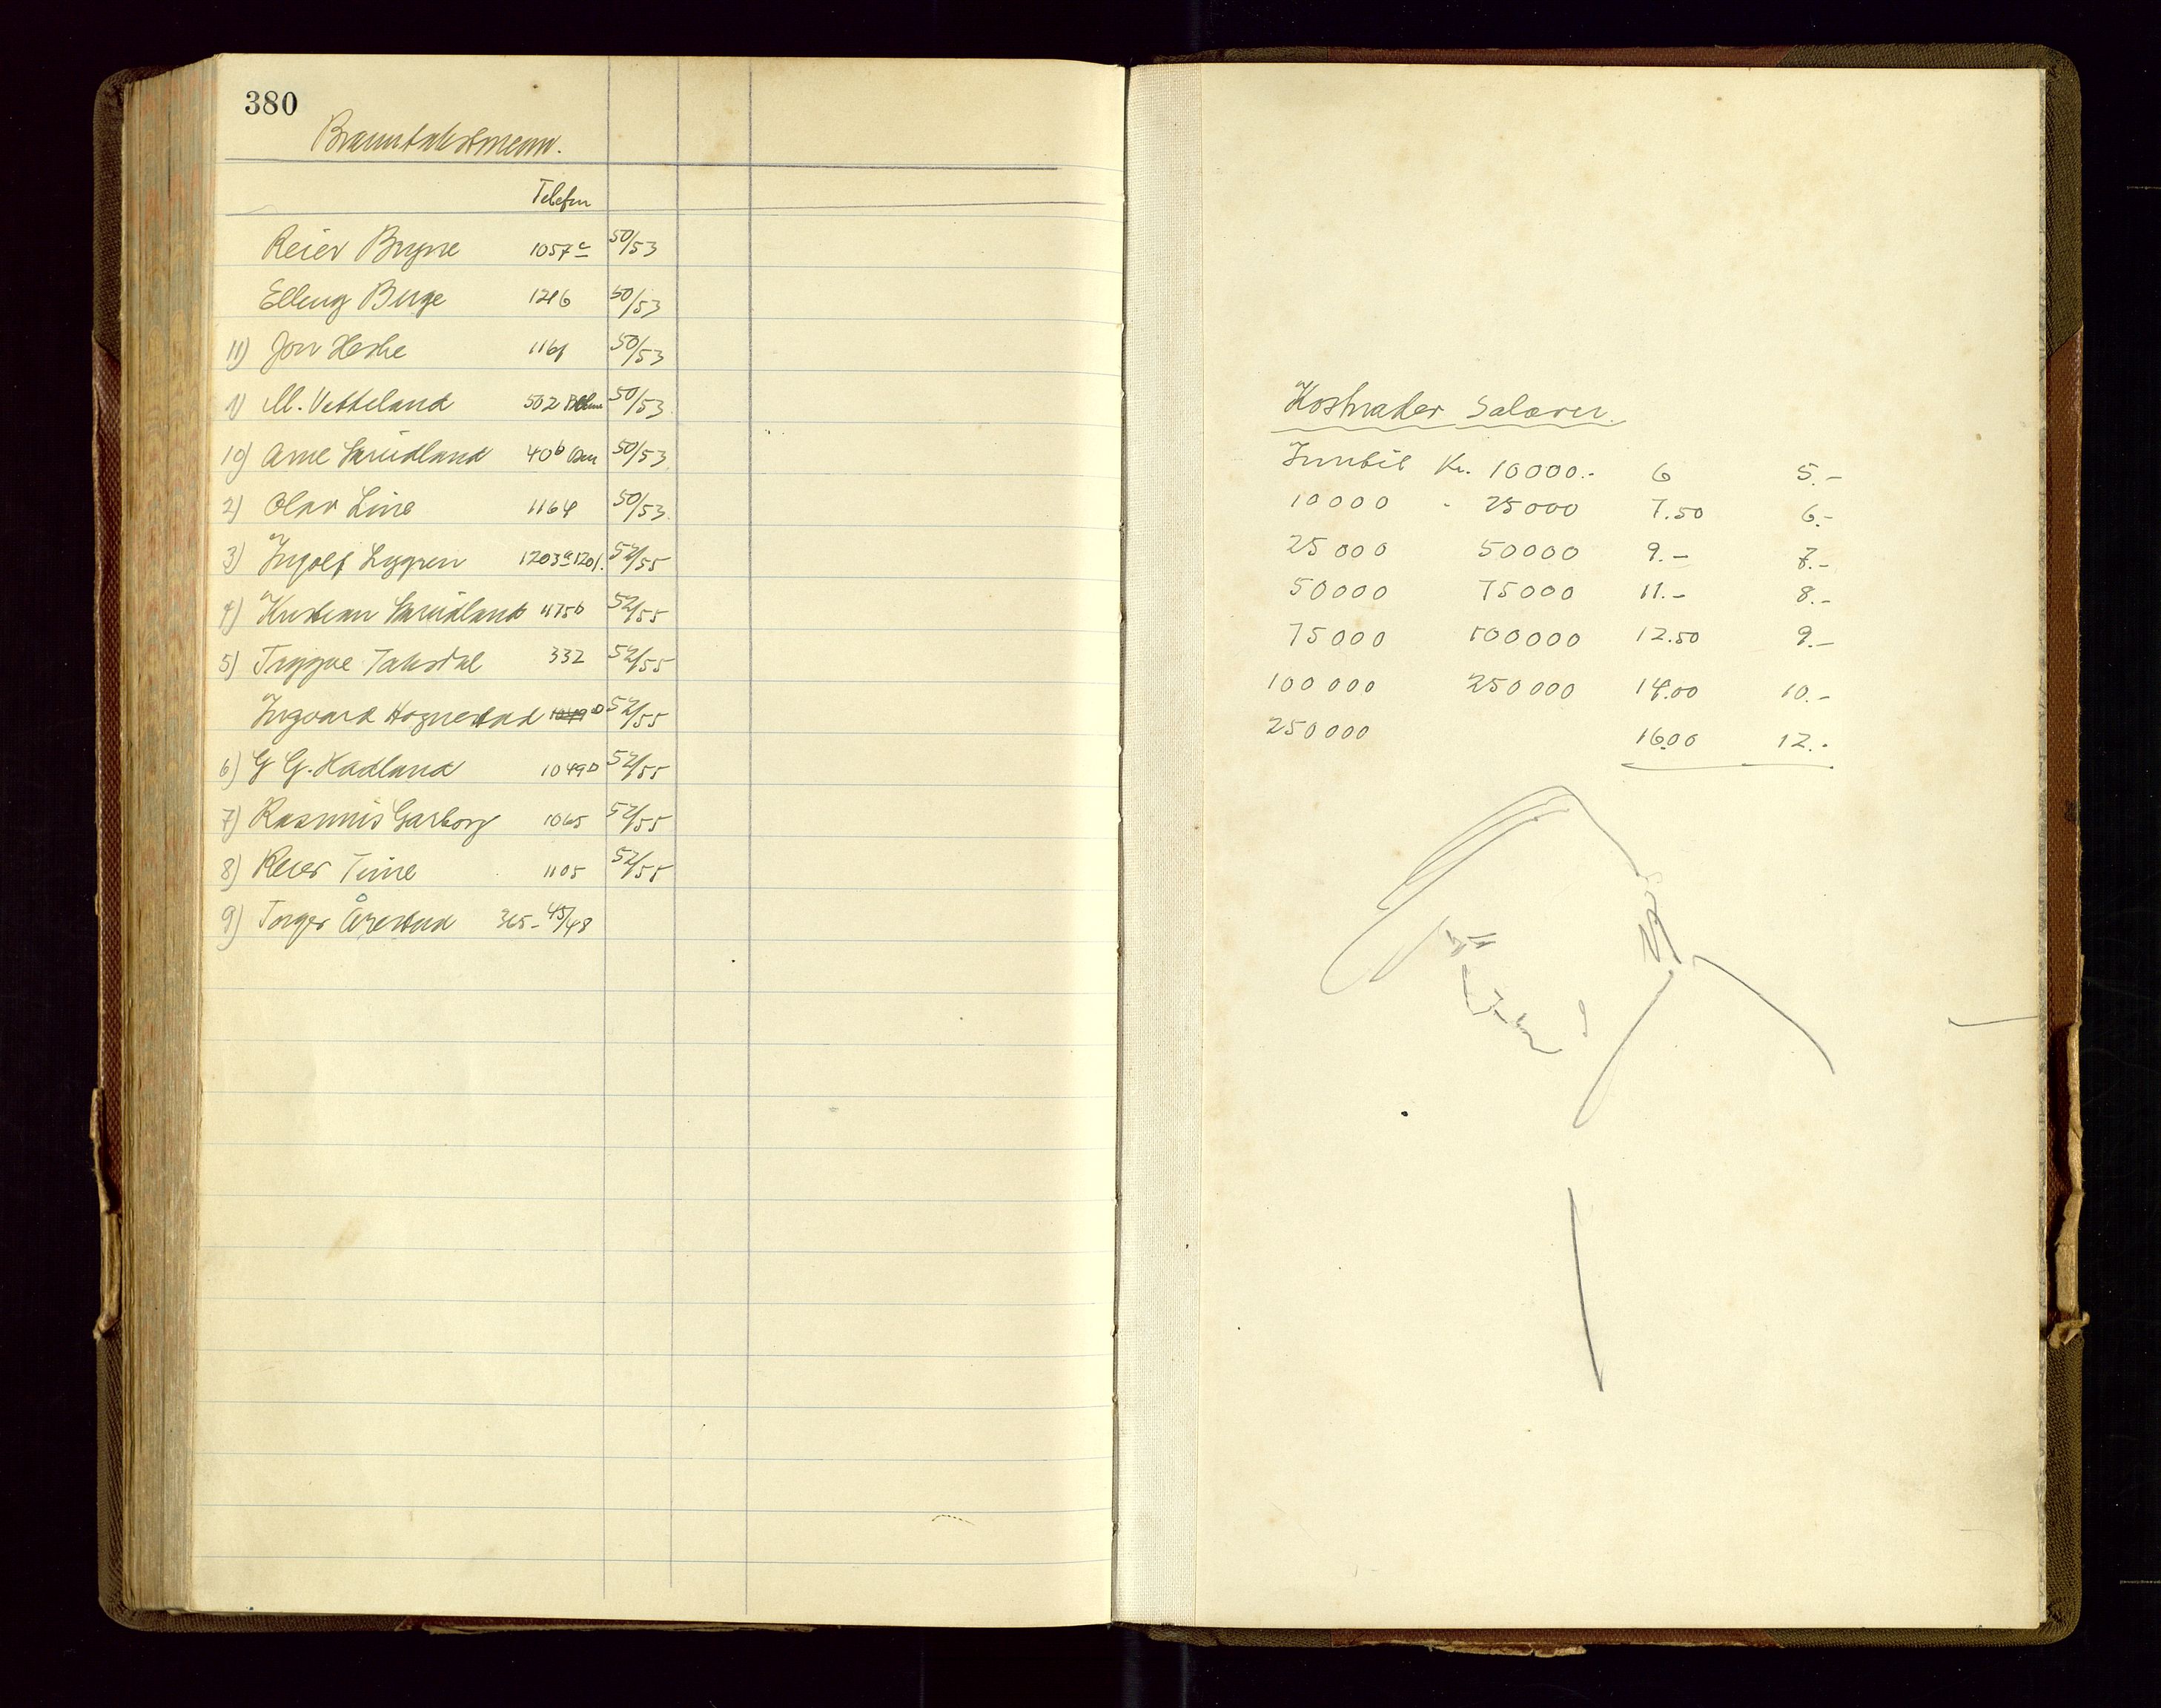 380
Branntakstmenn.
Telefon
Reier Bryne 1057c 50/53
Elling Berge 1216 50/53
11) Jon Herhe 1161 50/53
1) M. Vetteland 502 50/53
10) Arne Sandland 40b 50/53
2) Olav Line 1164 50/53
3) Ingolf Lygren 1203a 1201. 52/55
4) Kristian 1175b 52/55
5) Tryggve Taksdal 332 52/55
Ingvard Hognestad 1049D 52/55
6) G G. Hadland 1049D 52/55
7) Rasmus Garborg 1065 52/55
8) Reier Time 1105 52/55
9) Torger Årestad 365- 45/48
Kostnader Salærer.
Inntil Kr. 10000.- 6 5.-
10000 - 25000 7.50 6.-
25000 50000 9.- 7.-
50000 75000 11.- 8.-
75000 100000 12.50 9.-
100000 250000 14.00 10.-
250000 16.00 12.-